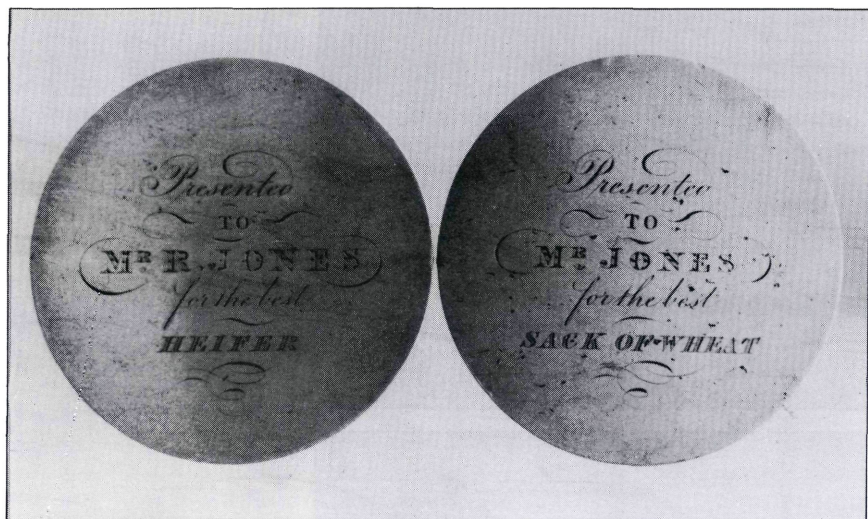 Presented
TO
MR. R. JONES
for the best
HEIFER
Presented
TO
MR. JONES
for the best
SACK OF WHEAT